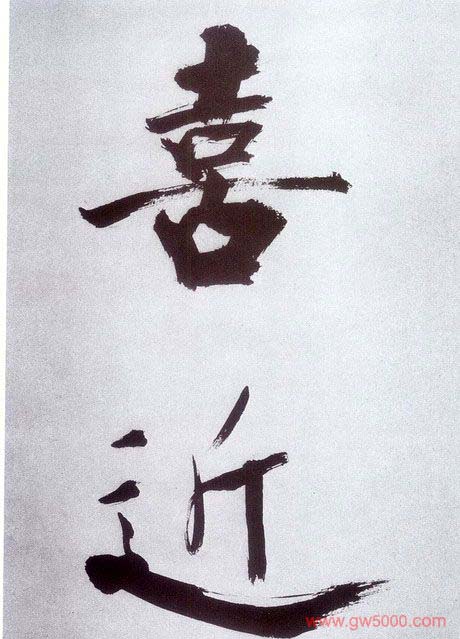 喜
近
www.gw5000.com